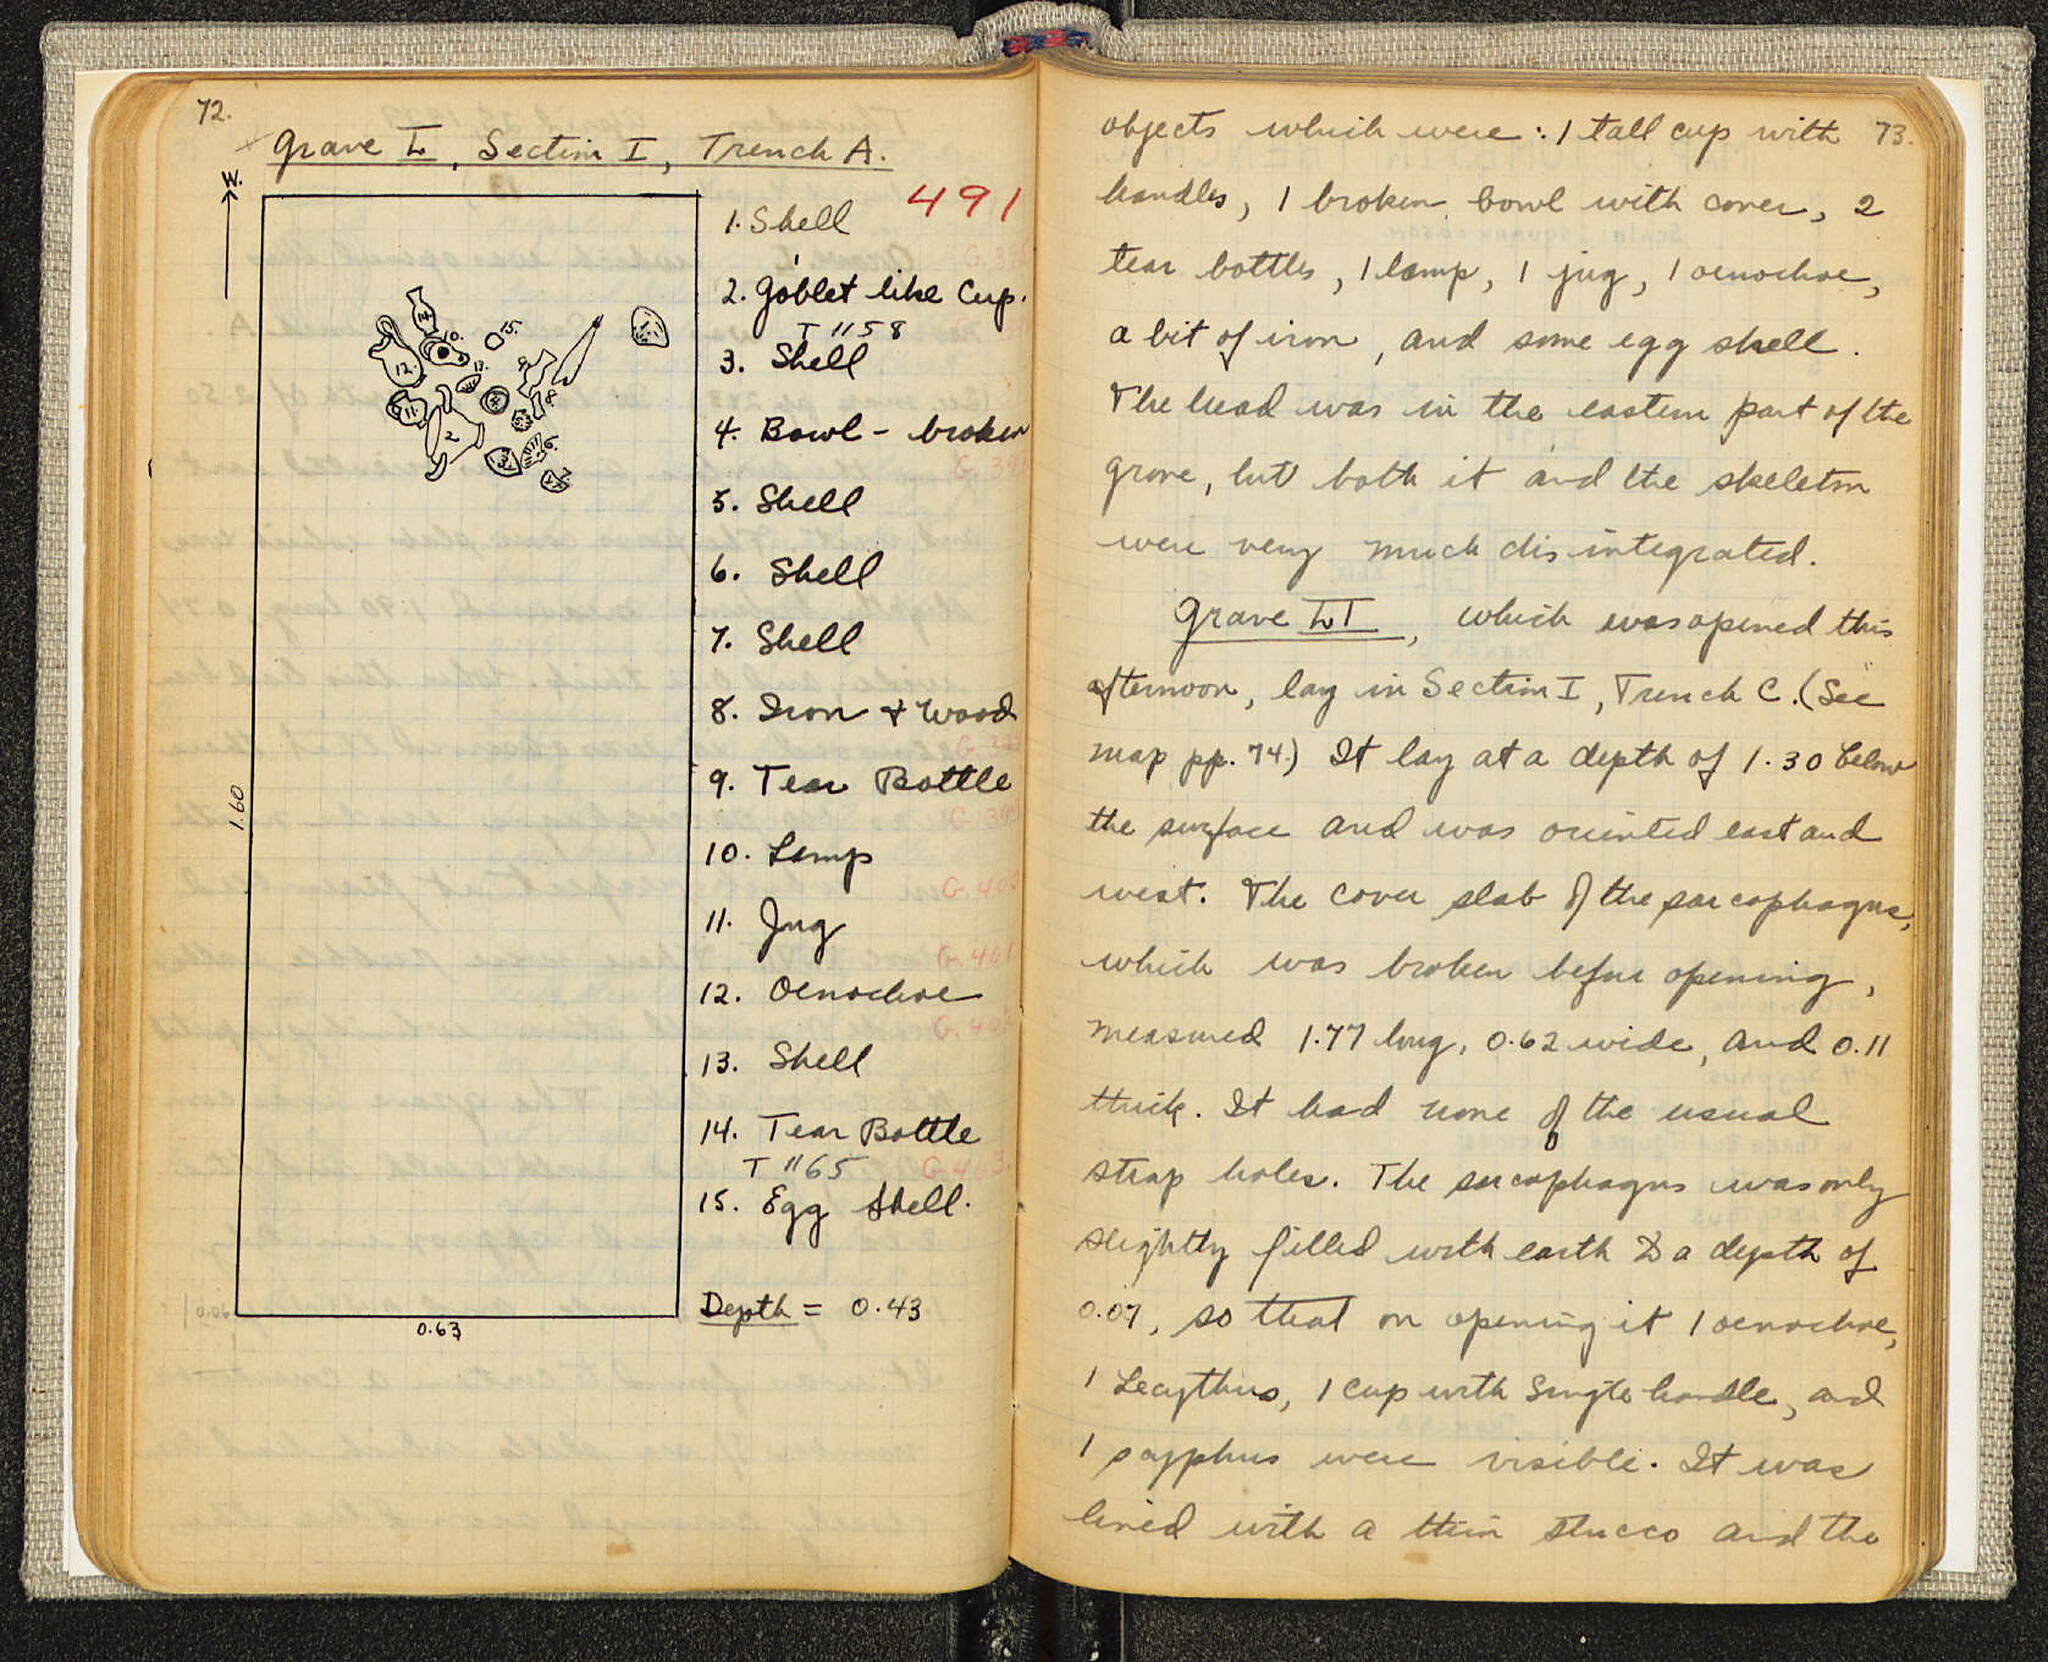 72.
Grave L, Section I, Trench A.
W.
491
1. Shell
2. Goblet like Cup.
T 1158
3. Shell
4. Bowl - broken
5. Shell
6. Shell
7. Shell
8. Iron + Wood
9. Tear Bottle
10. Lamp
11. Jug
12. Oenochoe
13. Shell
14. Tear Bottle
T 1165
15. Egg Shell.
Depth = 0.43
1.60
0.63
14
10.
15.
12.
13.
9.
8.
11.
2
3.
6.
objects which were : 1 tall cup with 73.
handles, 1 broken bowl with cover, 2
tear bottles, 1 lamp, 1 jug, 1 oenochoe,
a bit of iron, and some egg shell.
The head was in the eastern part of the
grave, but both it and the skeleton
were very much disintegrated.
Grave LI, which was opened this
afternoon, lay in Section I, Trench C. (See
map pp. 74.) It lay at a depth of 1.30 below
the surface and was oriented east and
west. The cover slab of the sarcophagus,
which was broken before opening,
measured 1.77 long, 0.62 wide, and 0.11
thick. It had none of the usual
strap holes. The sarcophagus was only
slightly filled with earth to a depth of
0.07, so that on opening it 1 oenochoe,
1 Lecythus, 1 cup with single handle, and
1 scyphus were visible. It was
lined with a thin stucco and the